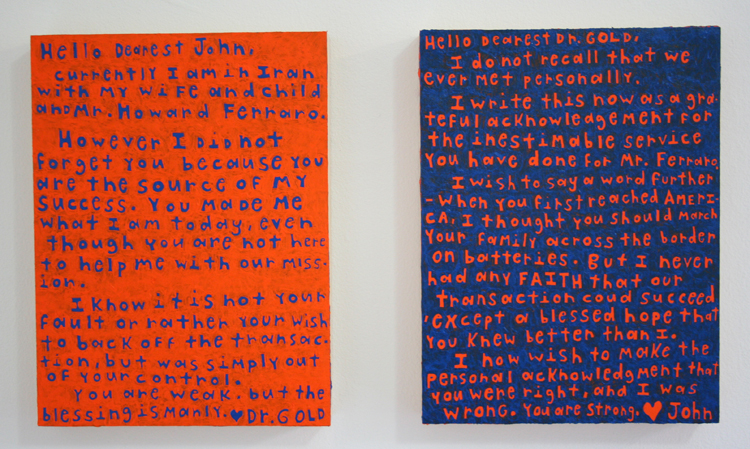 Hello Dearest John,
currently I am in Iran
with my wife and child
and Mr. Howard Ferraro.
However I Did not
forget you because you
are the source of my
success. You made me
what I am today, even
though you are not here
to help me with our miss-
ion.
I know it is not your
fault or rather your wish
to back off the transac-
tion, but was simply out
of your control.
You are weak. but the
blessing is manly. ♥ Dr. GOLD
Hello Dearest Dr. GOLD,
I do not recall that we
ever met personally.
I write this now as a gra-
teful acknowledgement for
the inestimable service
you have done for Mr. Ferraro.
I wish to say a word further
- when you first reached AMERI-
CA, I thought you should march
your family across the border
on batteries. But I never
had any FAITH that our
transaction coud succeed
, except a blessed hope that
you knew better than I.
I now wish to make the
personal acknowledgment that
you were right, and I was
wrong. You are strong. ♥ John